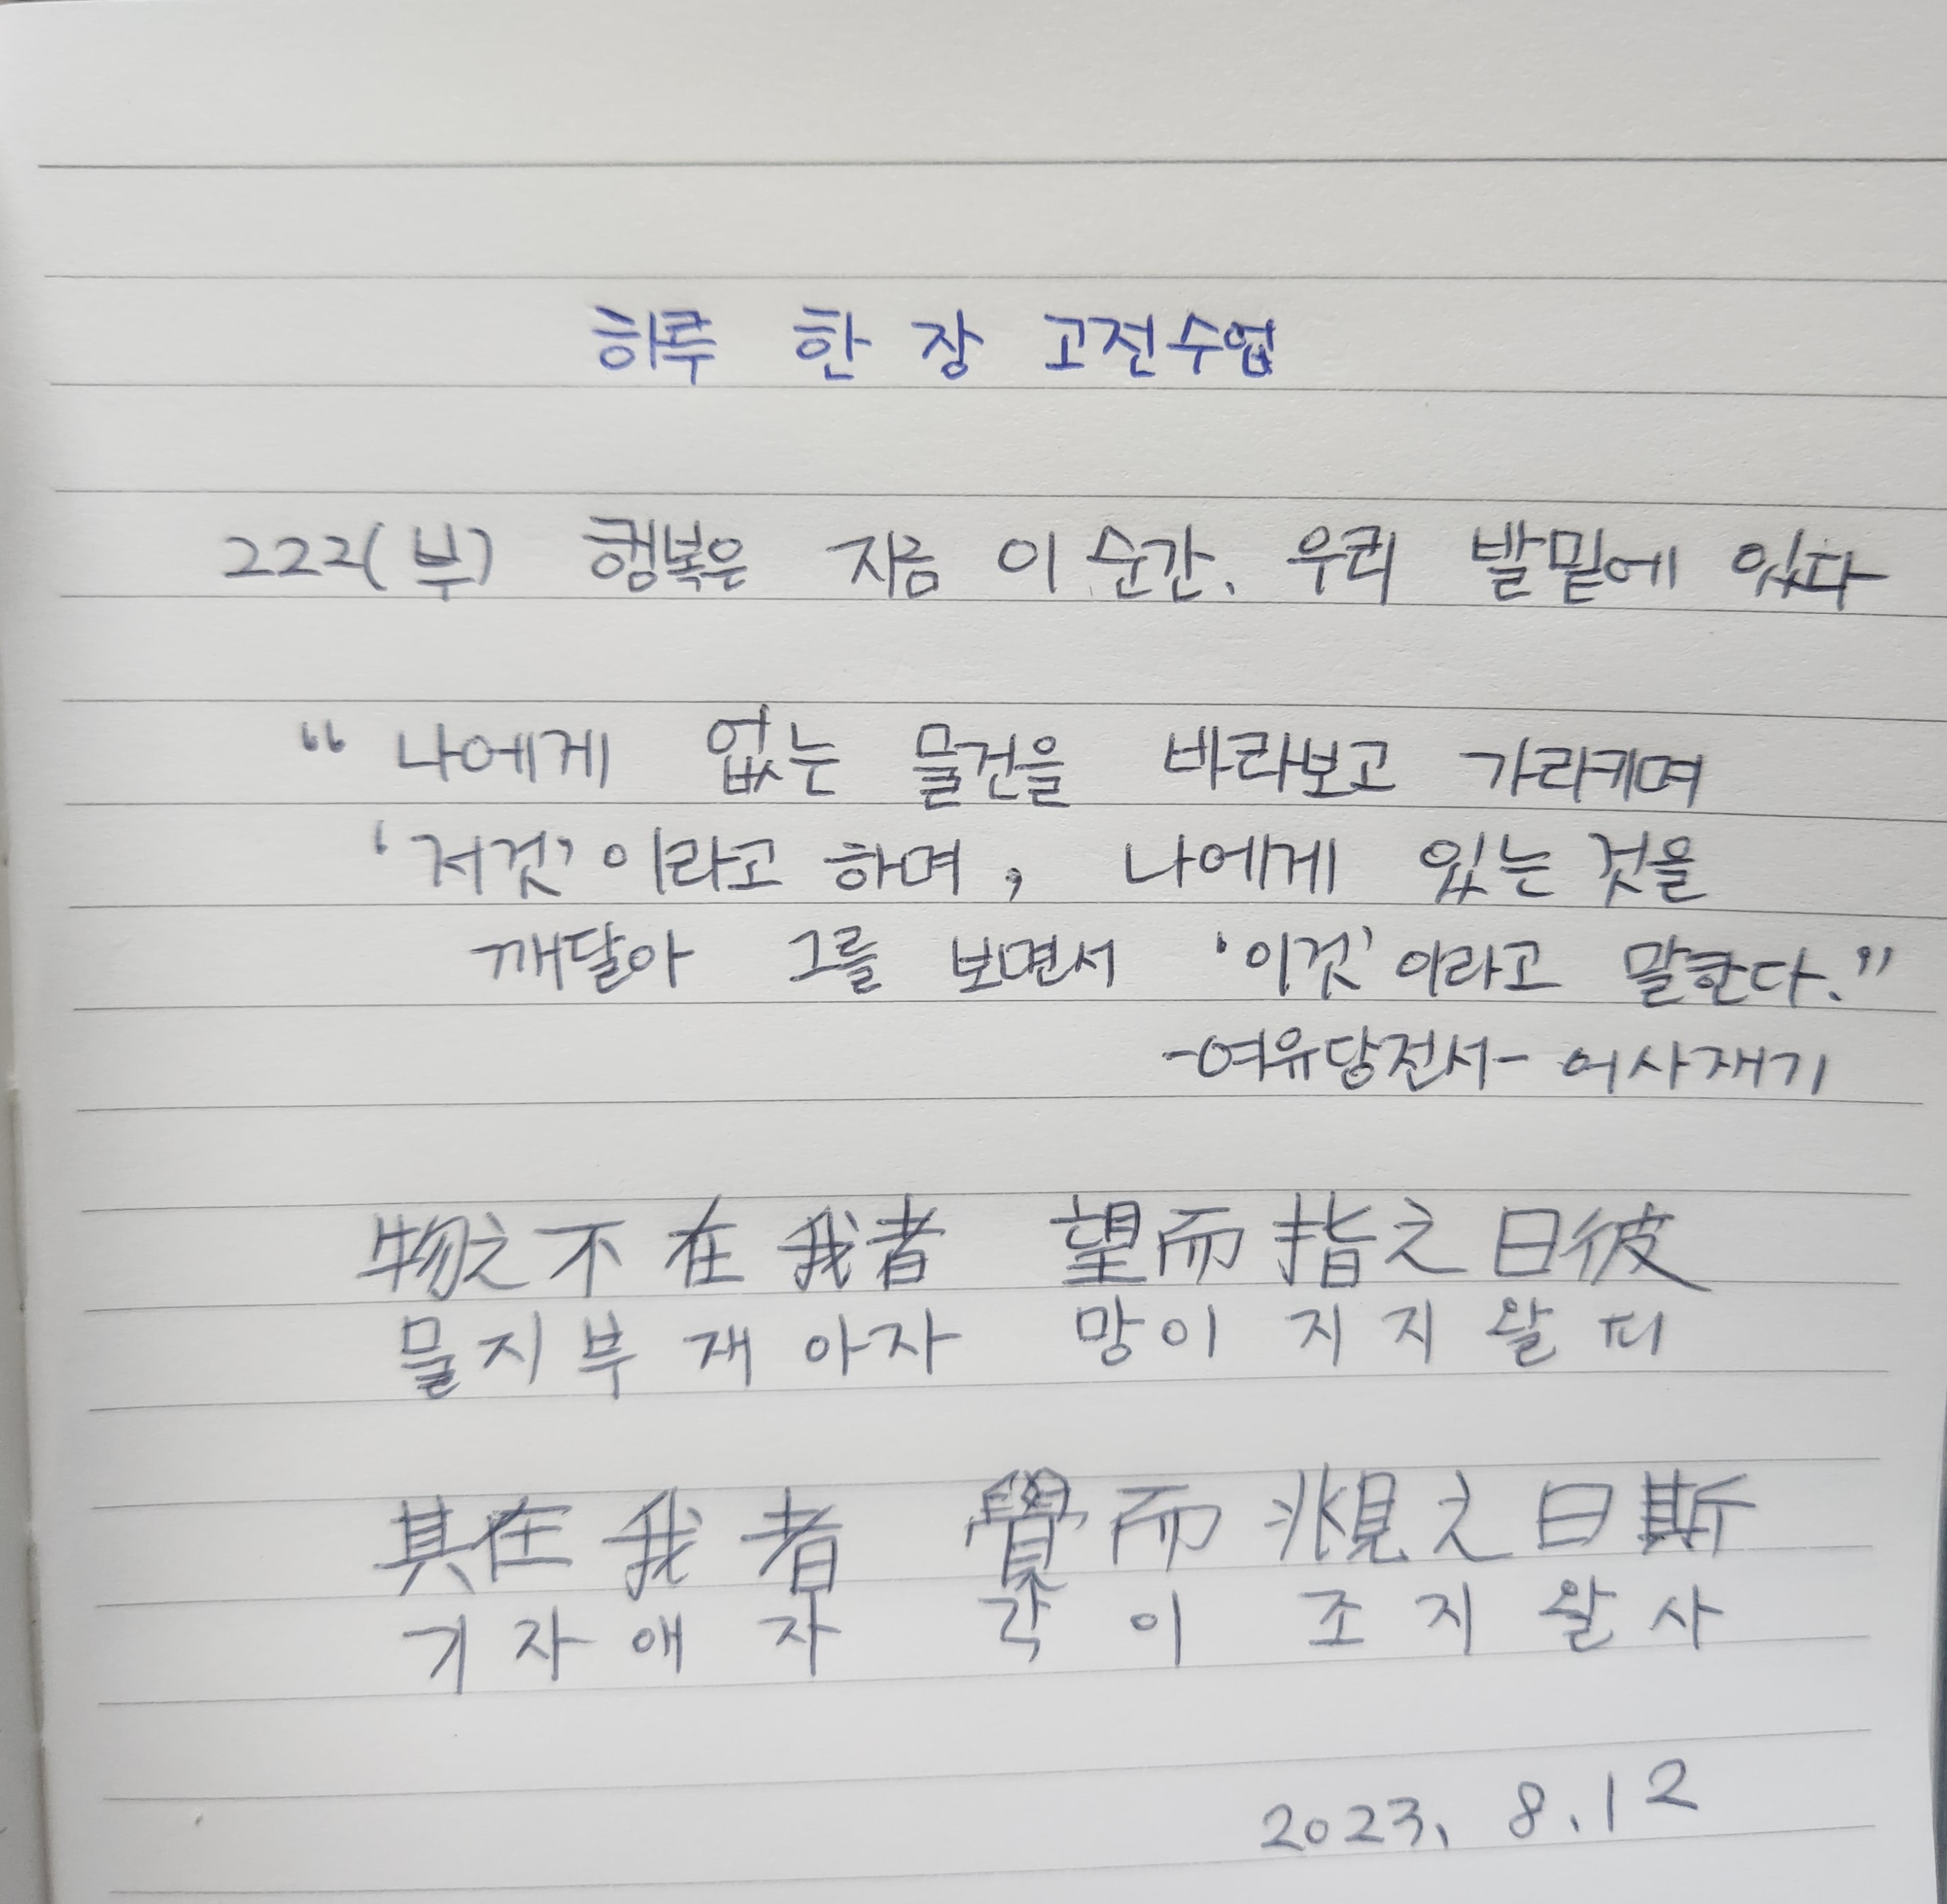 하루 한 장 고전수업
222(부) 행복은 지금 이 순간, 우리 발밑에 있다
“나에게 없는 물건을 바라보고 가라키며
‘저것’이라고 하며, 나에게 있는 것을
깨달아 그를 보면서 ‘이것’이라고 말한다.”
-여유당전서- 어사재기
物之不在我者 望而指之曰彼
물지부재아자 망이지지왈피
其在我者 覺而覜之曰斯
기자애자 각이조지왈사
2023. 8. 12